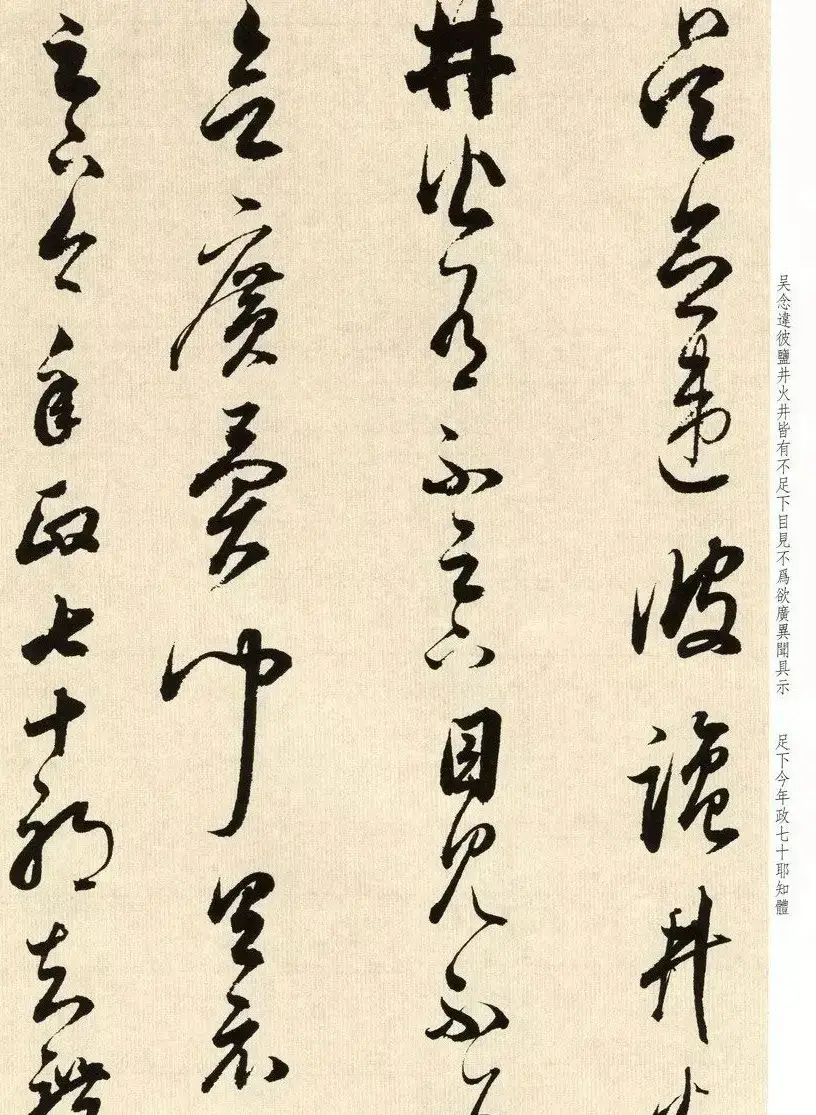 吴念違彼鹽井火井皆有不足下目見不爲欲廣異聞具示
足下今年政七十耶知體
吴念違彼鹽井火
井皆有不足下目見不爲
欲廣異聞具示
足下今年政七十耶知體